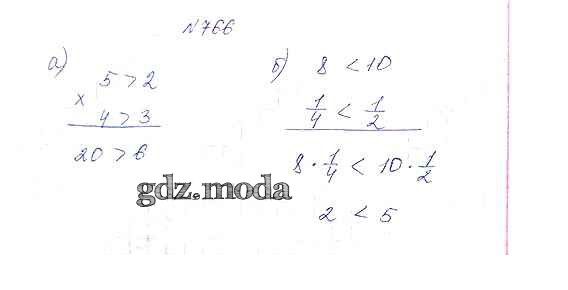 №766
а)
5 > 2
×
4 > 3
20 > 6
б)
8 < 10
1/4 < 1/2
8 · 1/4 < 10 · 1/2
2 < 5
gdz.moda